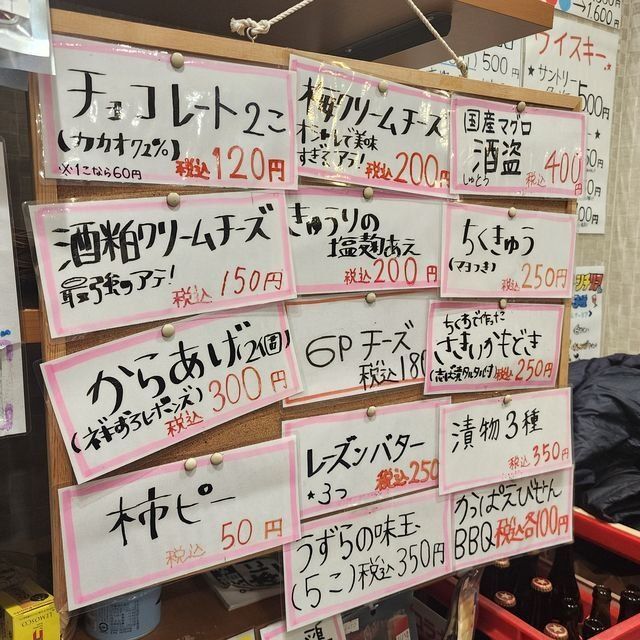 チョコレート2こ
(カカオ72%)
※1こなら60円
税込 120円
梅クリームチーズ
オシャレで美味
すぎるアテ!
税込 200円
国産マグロ
酒盗
しゅとう
税込 400円
酒粕クリームチーズ
最強のアテ!
税込 150円
きゅうりの
塩麹あえ
税込 200円
ちくきゅう
(マヨつき)
税込 250円
からあげ(2個)
税込 300円
6Pチーズ
税込 180
ちくわで作った
さきいかもどき
税込 250円
レーズンバター
★3つ
税込 250
漬物3種
税込 350円
柿ピー
税込 50円
うずらの味玉
(5こ)税込350円
かっぱえびせん
BBQ 税込各100円
ウイスキー
★サントリー
500円
→1,600円
LEMOSCO
鶏